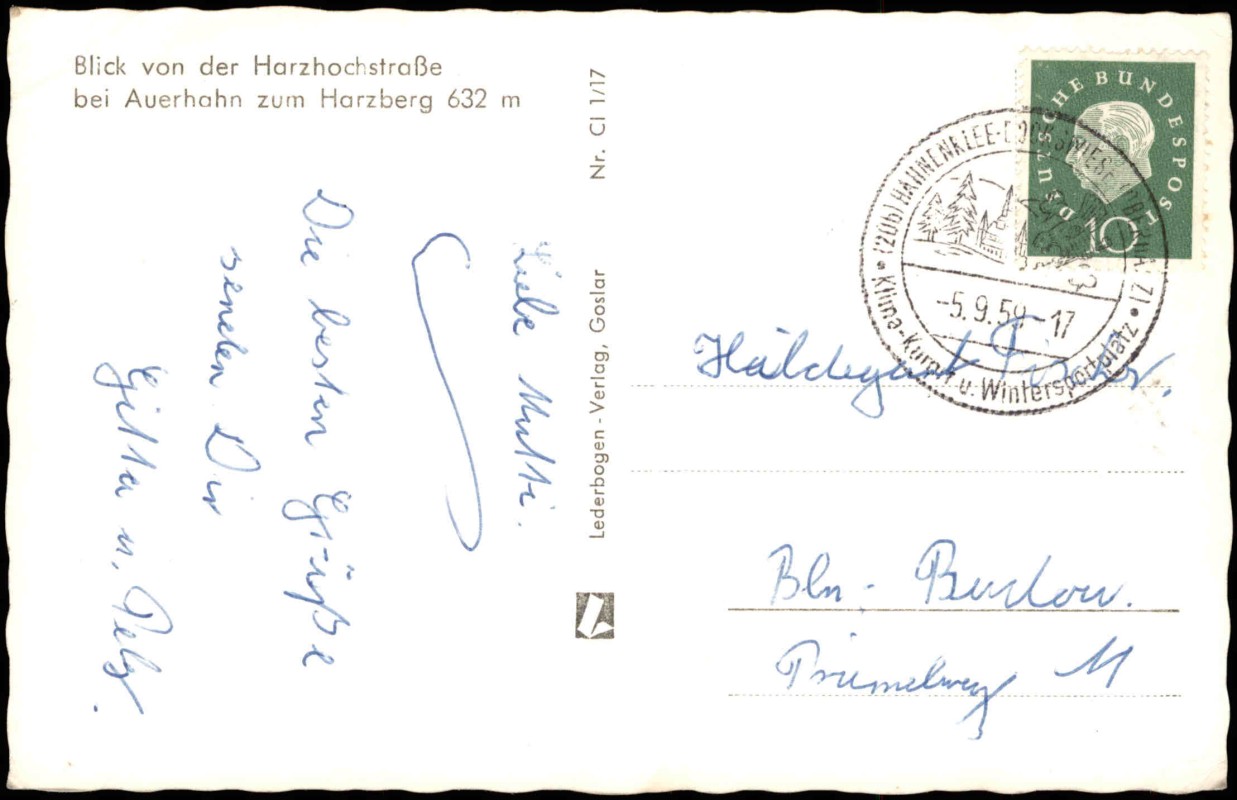 Blick von der Harzhochstraße
bei Auerhahn zum Harzberg 632 m
Liebe Mutti.
Die besten Grüße
senden Dir
Gitta u.
Nr. CI 1/17
Lederbogen - Verlag, Goslar
DEUTSCHE BUNDESPOST
10
(20b) HAHNENKLEE-BOCKSWIESE (OBERHARZ)
-5.9.59-17
Klima-Kurort u. Wintersportplatz
Hildegard Fischer.
Bln.- Buckow.
Priemelweg 11